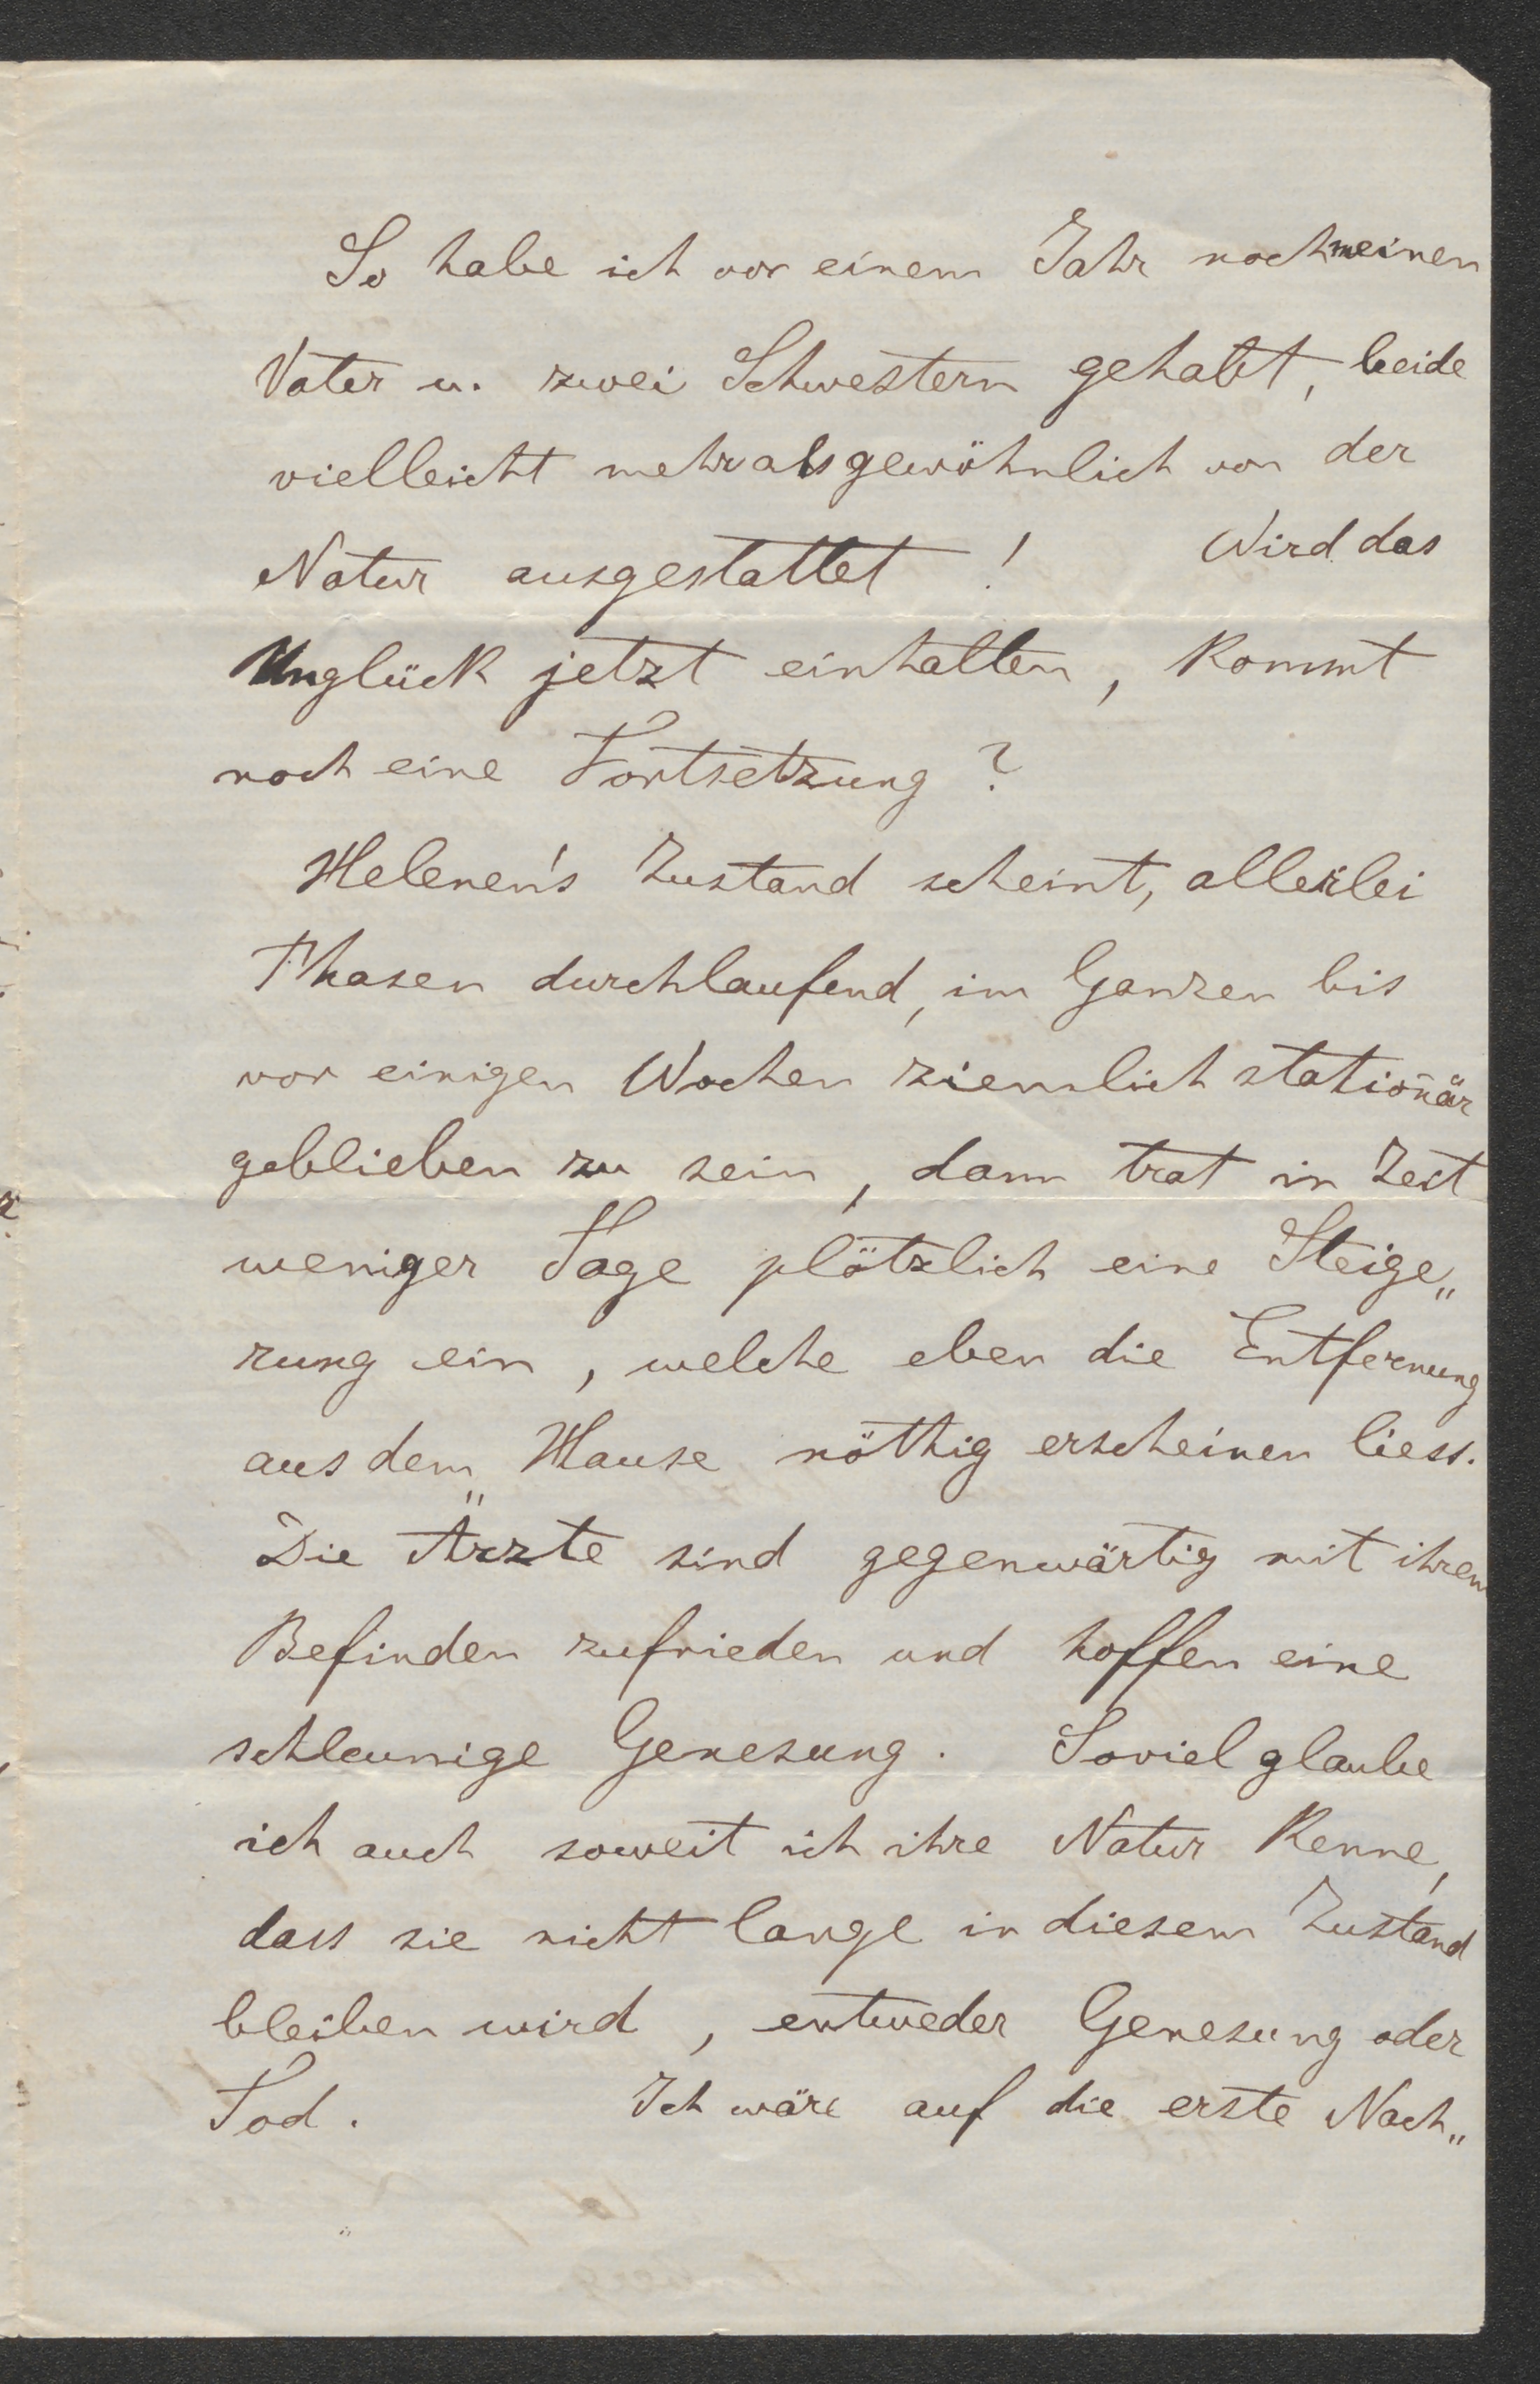 So habe ich vor einem Jahr noch meinen
Vater u. zwei Schwestern gehabt, beide
vielleicht mehr als gewöhnlich von der
Natur ausgestattet ! Wird das
Unglück jetzt einhalten, kommt
noch eine Fortsetzung ?
Helenen's Zustand scheint, allerlei
Phasen durchlaufend, im Ganzen bis
vor einigen Wochen ziemlich stationär
geblieben zu sein, dann trat in Zeit
weniger Tage plötzlich eine Steige„
rung ein, welche eben die Entfernung
aus dem Hause nöthig erscheinen liess.
Die Ärzte sind gegenwärtig mit ihrem
Befinden zufrieden und hoffen eine
schleunige Genesung. Soviel glaube
ich auch soweit ich ihre Natur kenne,
dass sie nicht lange in diesem Zustand
bleiben wird, entweder Genesung oder
Tod. Ich wäre auf die erste Nach„